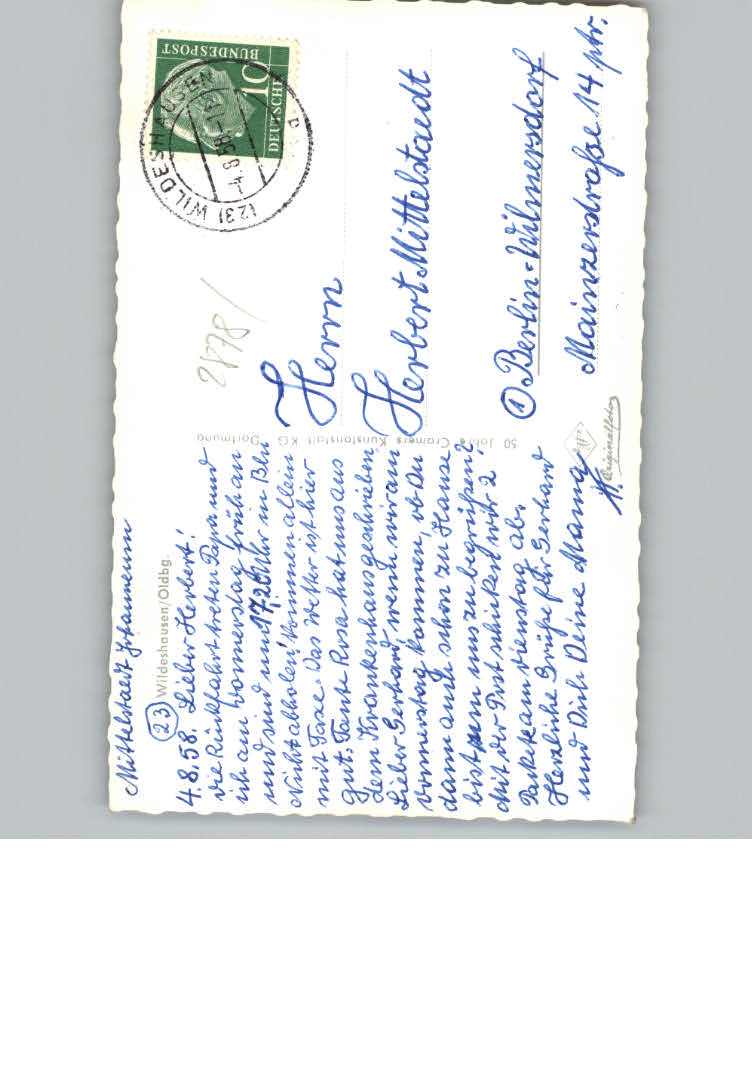 Mittelstaedt Johanneum
(23) Wildeshausen/Oldbg.
4.8.58. Lieber Herbert!
Die Rückfahrt treten Papa und
ich am Donnerstag früh an
und sind um 17,20 Uhr in Bln
Nicht abholen! Kommen allein
mit Taxe. Das Wetter ist hier
gut. Tante Rosa hat uns aus
dem Krankenhaus geschrieben.
Lieber Gerhard, wenn wir am
Donnerstag kommen, ob Du
dann auch schon zu Hause
bist um uns zu begrüßen?
Mit der Post schicken wir 2
Pakete am Dienstag ab.
Herzliche Grüße für Gerhard
und Dich Deine Mama
50 Jahre Cramers Kunstanstalt KG Dortmund
Originalfoto
2878/
DEUTSCHE
BUNDESPOST
10
(23) WILDESHAUSEN
-4.8.58-
Herrn
Herbert Mittelstaedt
(1) Berlin-Wilmersdorf
Mainzerstraße 14 ptr.